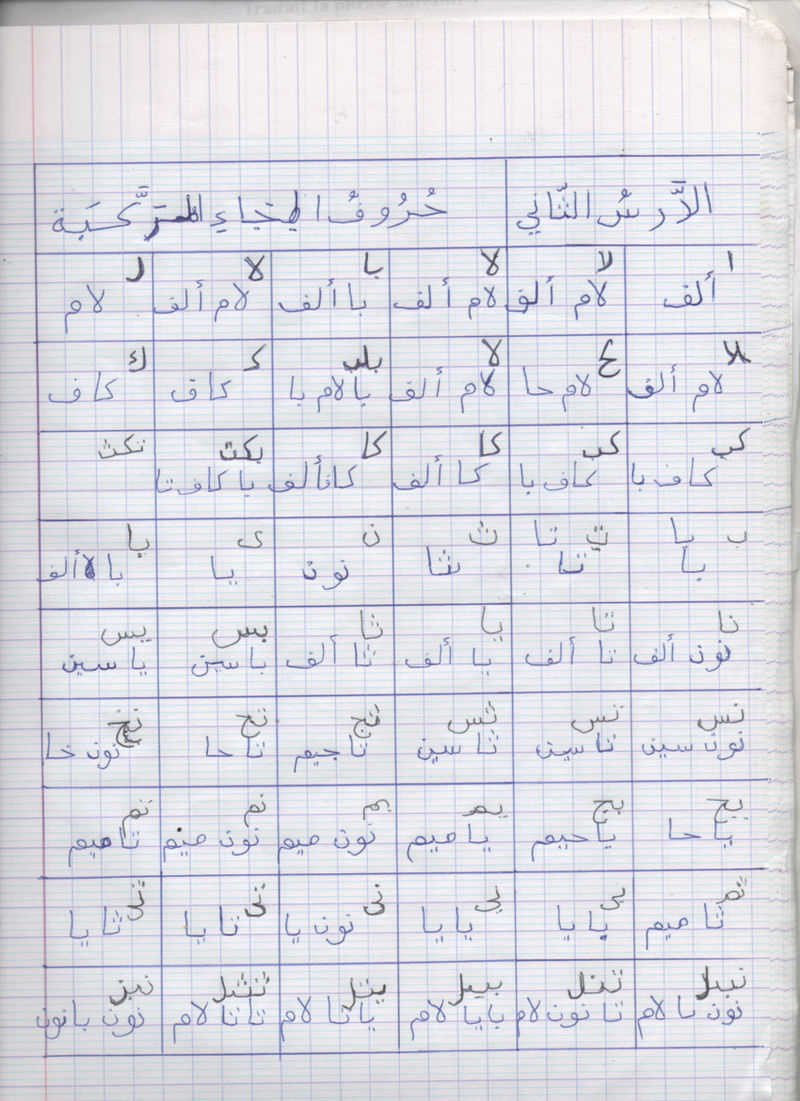 الدَّرسُ الثَّاني حُرُوفُ الهِجَاءِ المُرَكَّبَة
ا لا لا با لا ل
ألف لام ألف لام ألف با ألف لام ألف لام
لام ألف لام حا لام ألف با لام با كاف كاف
كب كب كا كا بكت تكث
كاف با كاف با كا ألف كاف ألف با كاف تا
ب يا ت تا ث ن ى يا
با تا ثا نون يا با ألف
نا تا يا ثا بس يس
نون ألف تا ألف يا ألف ثا ألف با سين يا سين
نس تس ثس تج تح نخ
نون سين تا سين ثا سين تا جيم تا حا نون خا
يح يج يم نم نم تم
يا حا يا جيم يا ميم نون ميم نون ميم تا ميم
ثم بى يى نى تى ثى
ثا ميم با يا يا يا نون يا تا يا ثا يا
تنل بيل يتل
نون با لام تا نون لام با يا لام يا تا لام تا ثا لام نون با نون